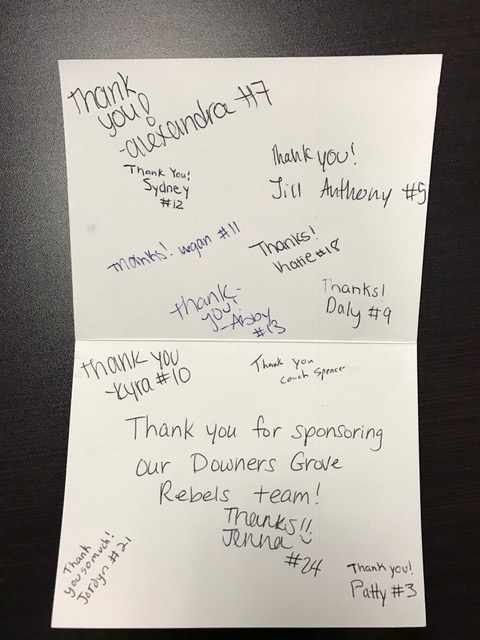 Thank
you!
-alexandra #7
Thank You!
Sydney
#12
Thank you!
Jill Anthony #5
Thanks! Megan #11
Thanks!
Katie #18
Thank-
you!
-Abby
#13
Thanks!
Daly #9
Thank you
-Kyra #10
Thank you
Coach Spencer
Thank you for sponsoring
our Downers Grove
Rebels team!
Thanks!!
Jenna
#24
Thank
you so much!
Jordyn #21
Thank you!
Patty #3